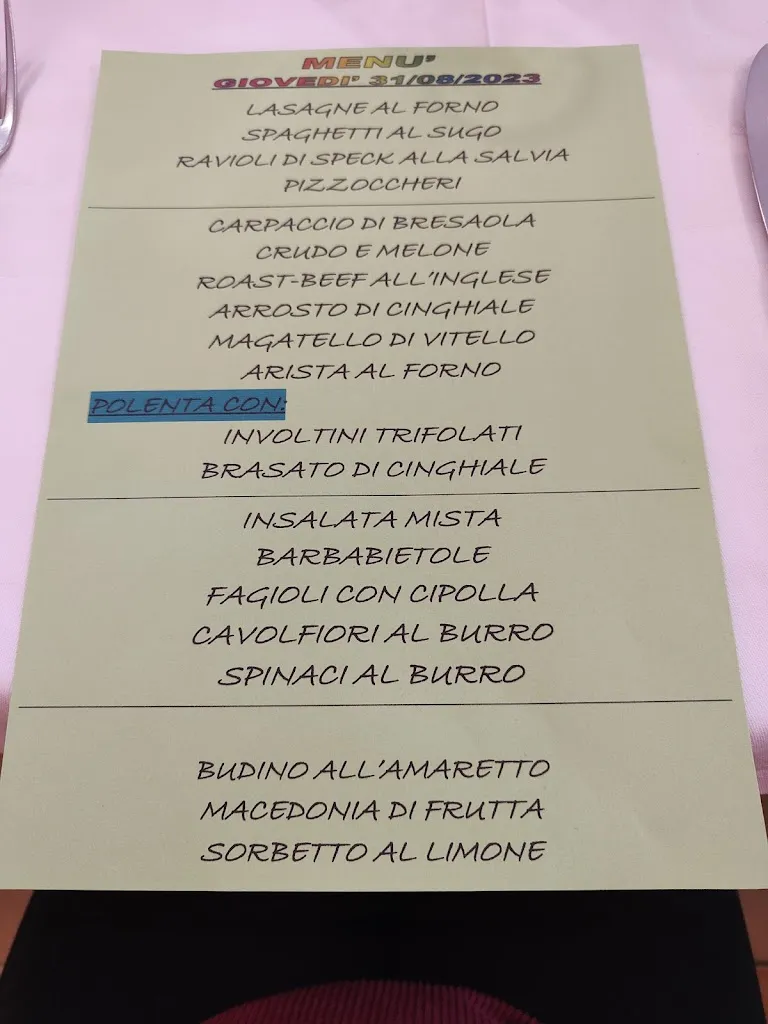 MENU'
GIOVEDI' 31/08/2023
LASAGNE AL FORNO
SPAGHETTI AL SUGO
RAVIOLI DI SPECK ALLA SALVIA
PIZZOCCHERI
CARPACCIO DI BRESAOLA
CRUDO E MELONE
ROAST-BEEF ALL'INGLESE
ARROSTO DI CINGHIALE
MAGATELLO DI VITELLO
ARISTA AL FORNO
POLENTA CON:
INVOLTINI TRIFOLATI
BRASATO DI CINGHIALE
INSALATA MISTA
BARBABIETOLE
FAGIOLI CON CIPOLLA
CAVOLFIORI AL BURRO
SPINACI AL BURRO
BUDINO ALL'AMARETTO
MACEDONIA DI FRUTTA
SORBETTO AL LIMONE